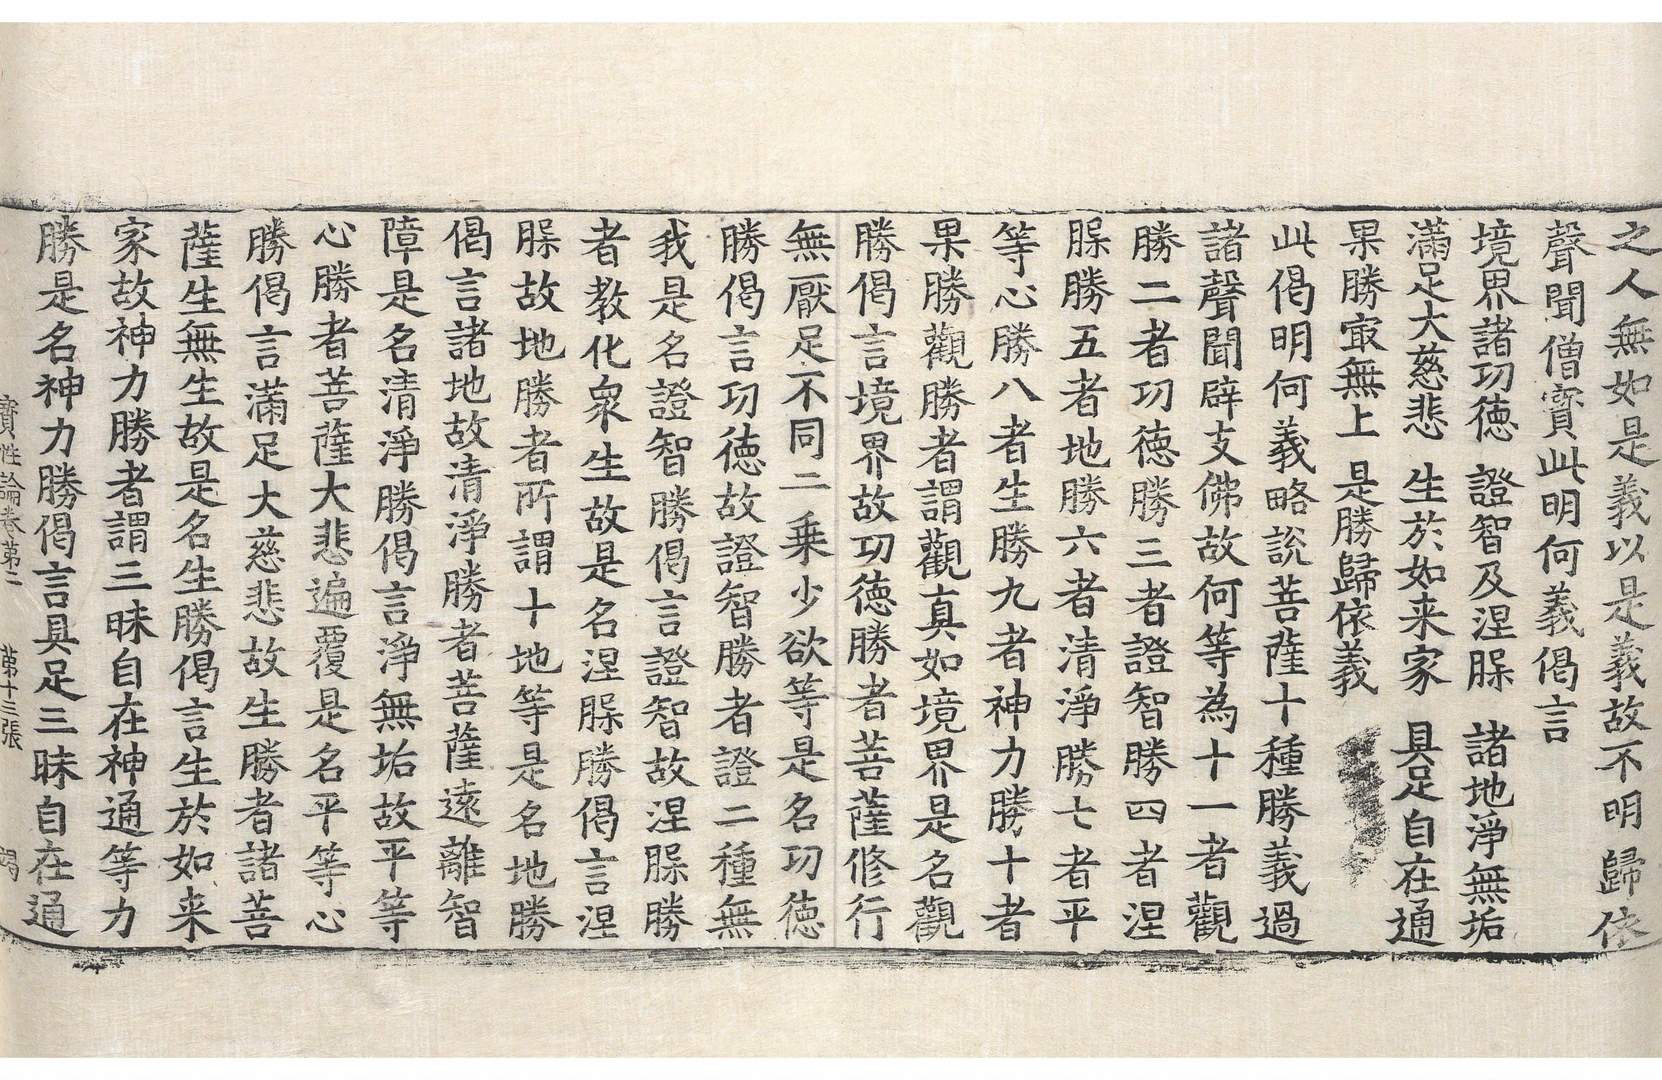 之人無如是義以是義故不明歸依
聲聞僧寳此明何義偈言
境界諸功徳　證智及涅䏶　諸地淨無垢
滿足大慈悲　生於如来家　具足自在通
果勝㝡無上　是勝歸依義
此偈明何義略說菩薩十種勝義過
諸聲聞辟支佛故何等為十一者觀
勝二者功徳勝三者證智勝四者涅
䏶勝五者地勝六者清淨勝七者平
等心勝八者生勝九者神力勝十者
果勝觀勝者謂觀真如境界是名觀
勝偈言境界故功徳勝者菩薩修行
無厭足不同二乗少欲等是名功徳
勝偈言功徳故證智勝者證二種無
我是名證智勝偈言證智故涅䏶勝
者教化衆生故是名涅䏶勝偈言涅
䏶故地勝者所謂十地等是名地勝
偈言諸地故清淨勝者菩薩遠離智
障是名清淨勝偈言淨無垢故平等
心勝者菩薩大悲遍覆是名平等心
勝偈言滿足大慈悲故生勝者諸菩
薩生無生故是名生勝偈言生於如来
家故神力勝者謂三昧自在神通等力
勝是名神力勝偈言具足三昧自在通
寳性論卷第二　第十三張　竭